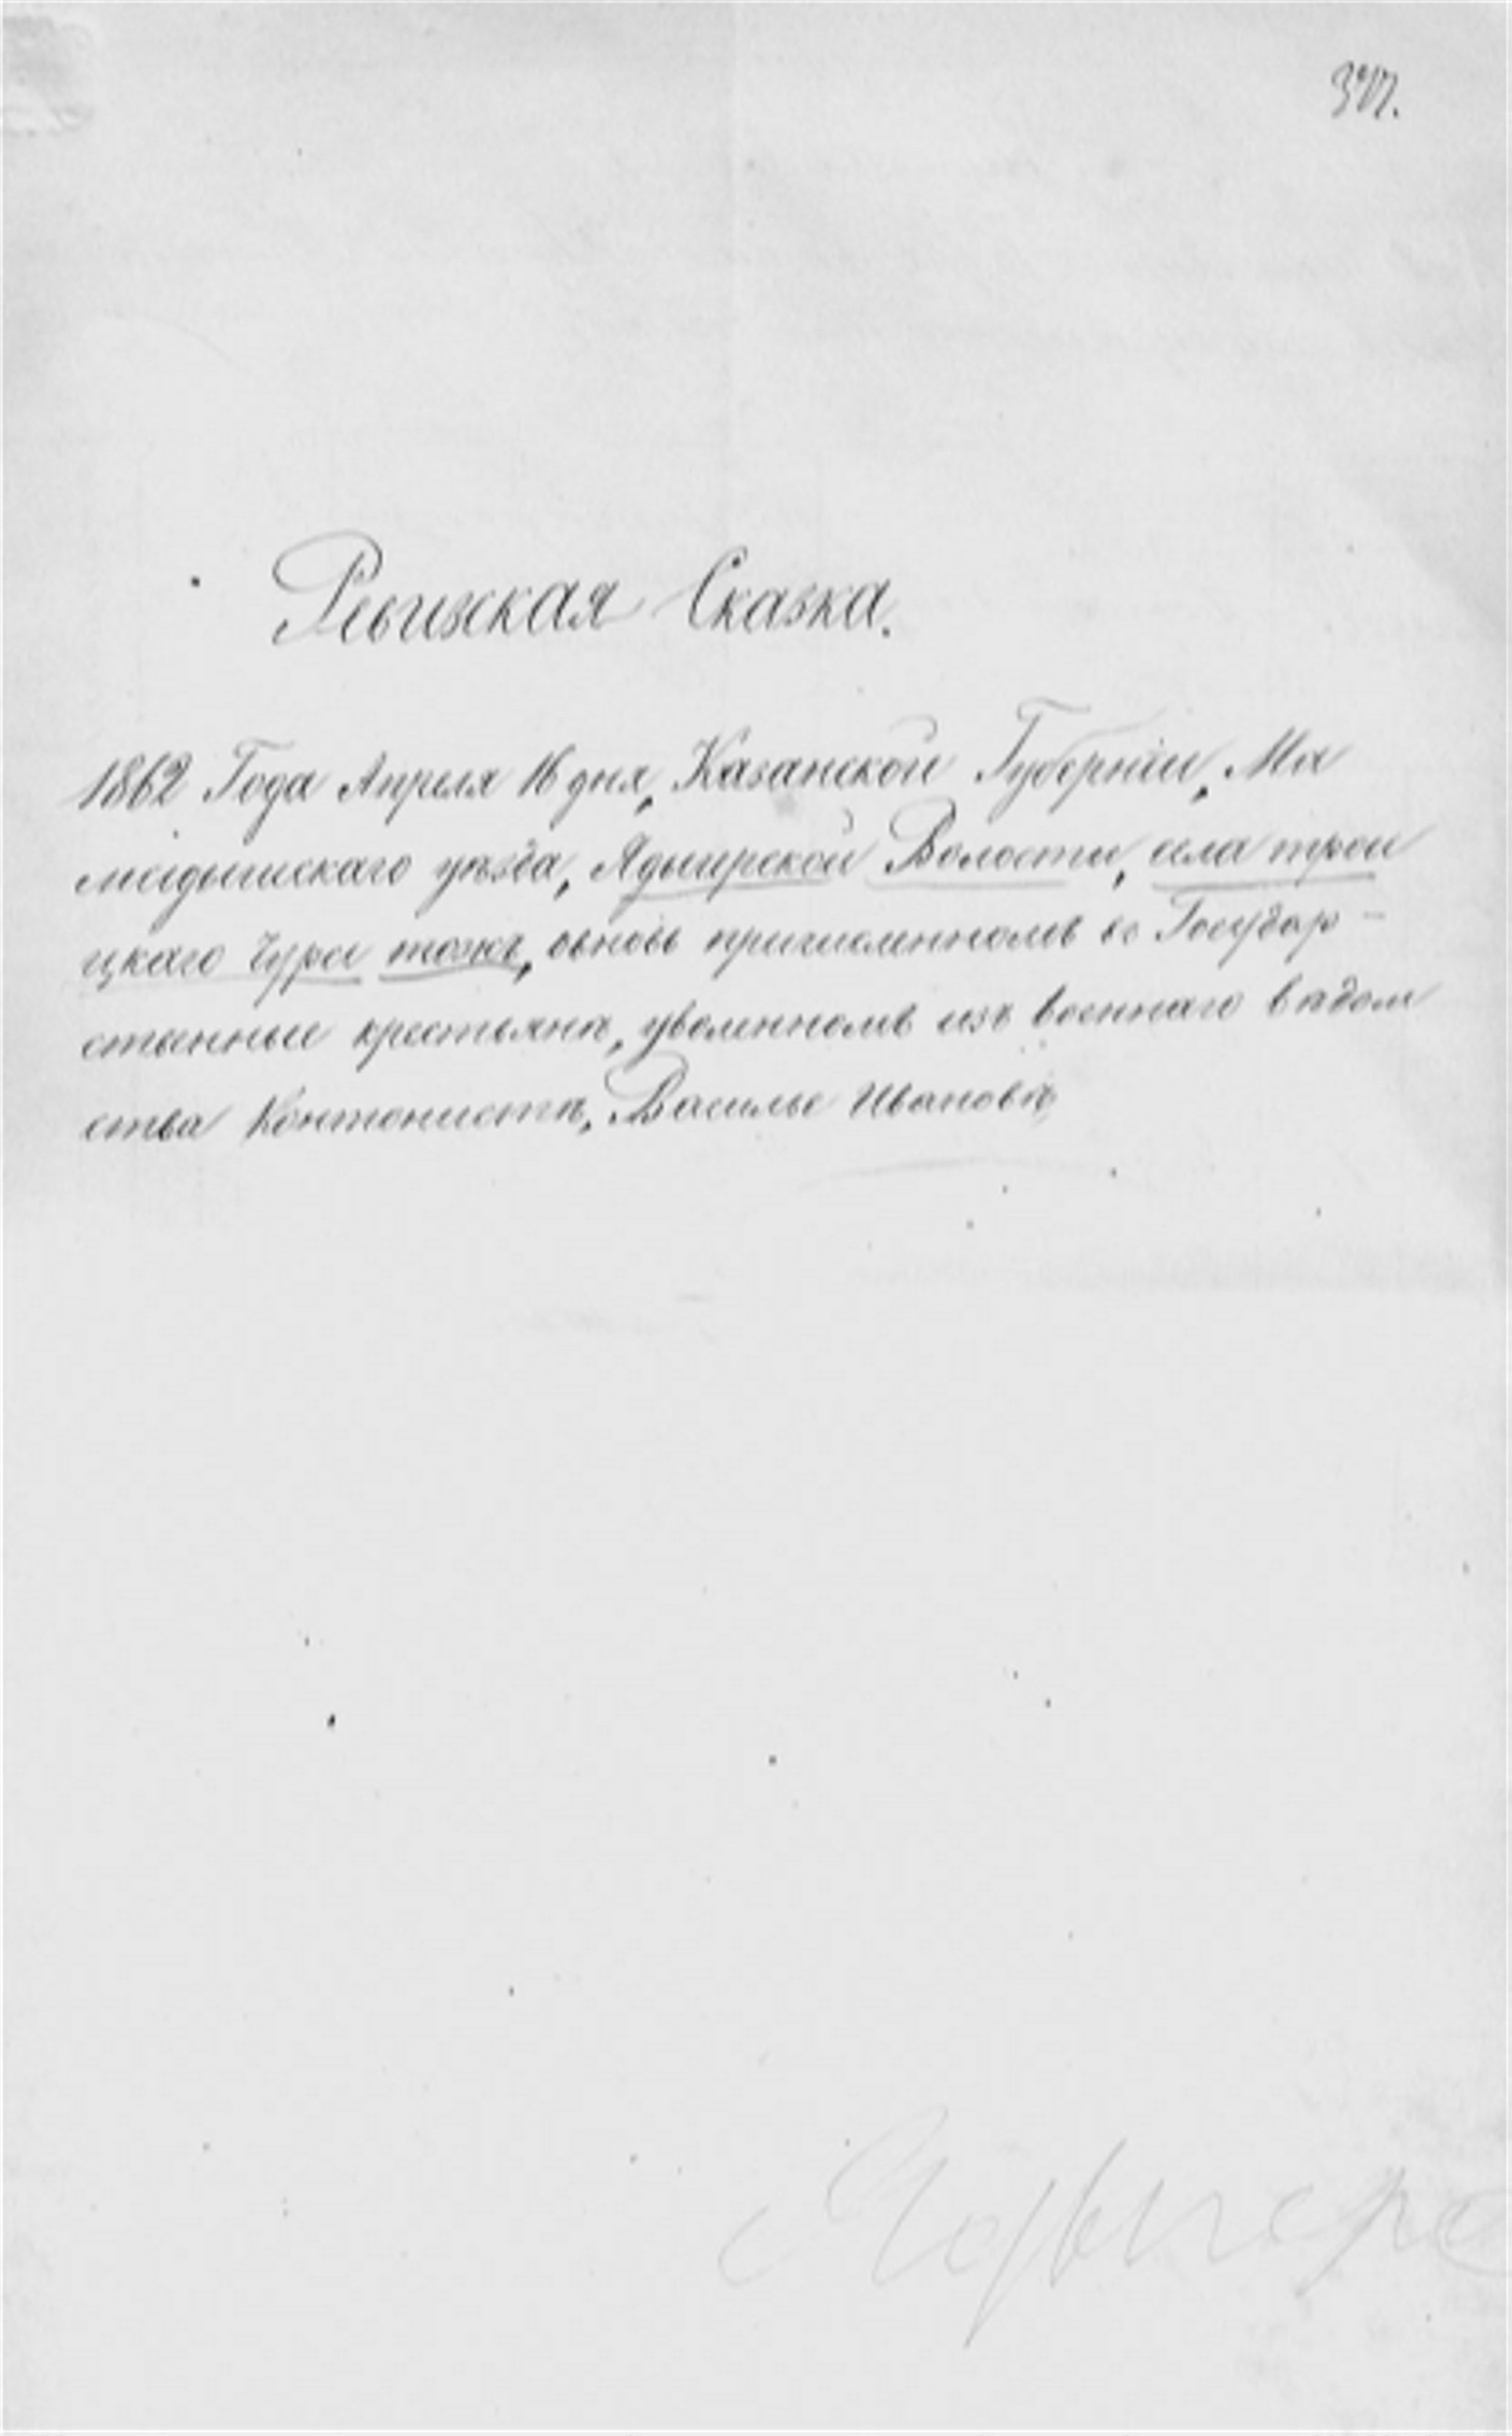 Ревизская Сказка.
1862 Года Апреля 16 дня, Казанской Губернiи, Ма
мадышскаго уѣзда, Ядыгерской Волости, села трои
цкаго Чури тожъ, вновь причисленномъ въ Государ-
ственные крестьяне, уволенномъ изъ военнаго вѣдом
ства Контонистѣ, Василье Ивановѣ